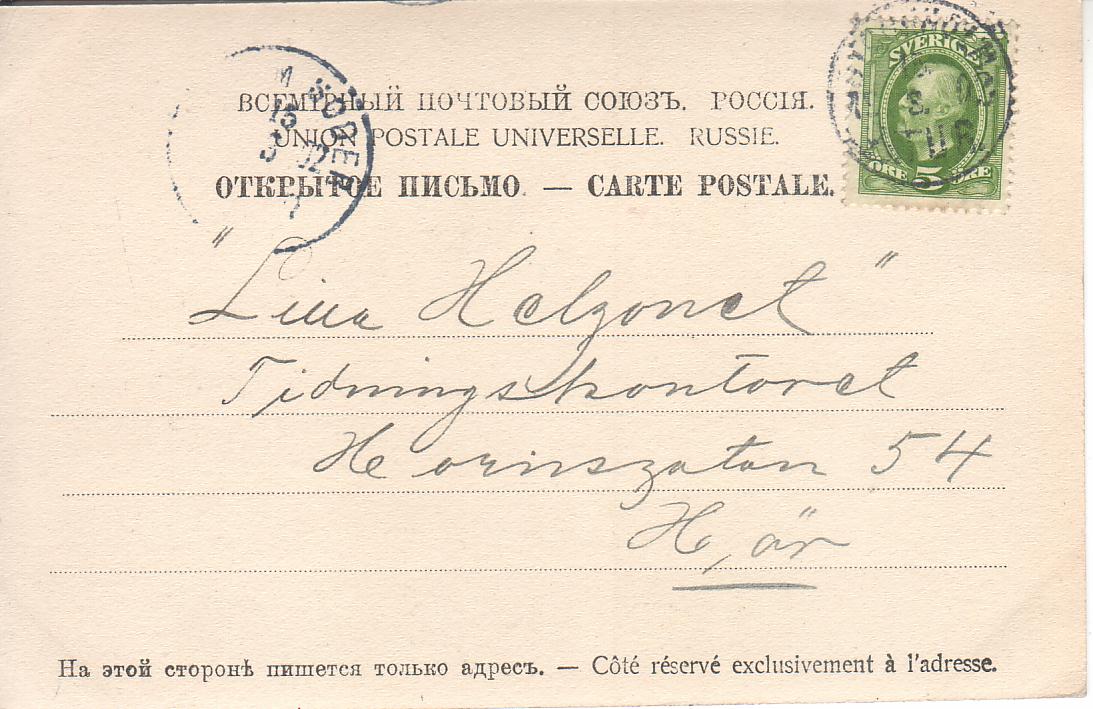 ВСЕМІРНЫЙ ПОЧТОВЫЙ СОЮЗЪ. РОССІЯ.
UNION POSTALE UNIVERSELLE. RUSSIE.
ОТКРЫТОЕ ПИСЬМО. — CARTE POSTALE.
SVERIGE
5
ÖRE ÖRE
SÖDER
15
5 02
"Lilla Helgonet"
Tidningskontoret
Hornsgatan 54
Här
На этой сторонѣ пишется только адресъ. — Côté réservé exclusivement à l'adresse.